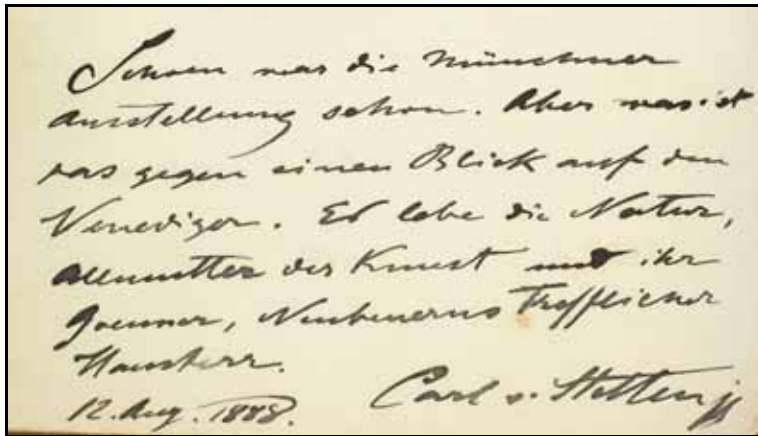 Schoen war die Münchner
Ausstellung schon. Aber was ist
das gegen einen Blick auf den
Venediger. Es lebe die Natur,
Allmutter der Kunst und ihr
Goenner, Neubeuerns Trefflicher
Hausherr.
12. Aug. 1888. Carl v. Stetten